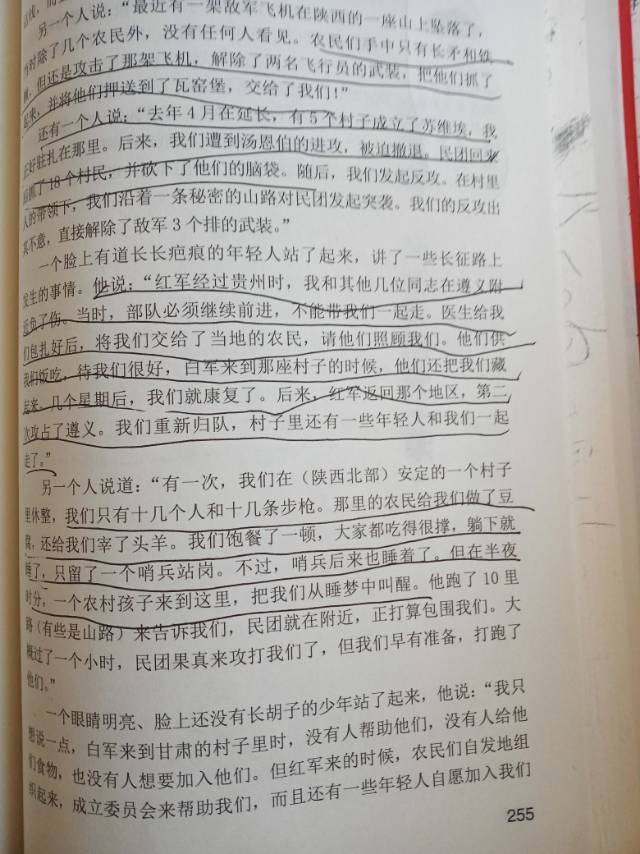 另一个人说：“最近有一架敌军飞机在陕西的一座山上坠落了，
当时除了几个农民外，没有任何人看见。农民们手中只有长矛和铁
锹，但还是攻击了那架飞机，解除了两名飞行员的武装，把他们抓了
起来，并将他们押送到了瓦窑堡，交给了我们！”
还有一个人说：“去年4月在延长，有5个村子成立了苏维埃，我
正好驻扎在那里。后来，我们遭到汤恩伯的进攻，被迫撤退。民团回来
后抓了18个村民，并砍下了他们的脑袋。随后，我们发起反攻。在村里
人的带领下，我们沿着一条秘密的山路对民团发起突袭。我们的反攻出
其不意，直接解除了敌军3个排的武装。”
一个脸上有道长长疤痕的年轻人站了起来，讲了一些长征路上
发生的事情。他说：“红军经过贵州时，我和其他几位同志在遵义附
近负了伤。当时，部队必须继续前进，不能带我们一起走。医生给我
们包扎好后，将我们交给了当地的农民，请他们照顾我们。他们供
我们饭吃，待我们很好，白军来到那座村子的时候，他们还把我们藏
起来。几个星期后，我们就康复了。后来，红军返回那个地区，第二
次攻占了遵义。我们重新归队，村子里还有一些年轻人和我们一起
走了。”
另一个人说道：“有一次，我们在（陕西北部）安定的一个村子
里休整，我们只有十几个人和十几条步枪。那里的农民给我们做了豆
腐，还给我们宰了头羊。我们饱餐了一顿，大家都吃得很撑，躺下就
睡了，只留了一个哨兵站岗。不过，哨兵后来也睡着了。但在半夜
时分，一个农村孩子来到这里，把我们从睡梦中叫醒。他跑了10里
路（有些是山路）来告诉我们，民团就在附近，正打算包围我们。大
概过了一个小时，民团果真来攻打我们了，但我们早有准备，打跑了
他们。”
一个眼睛明亮、脸上还没有长胡子的少年站了起来，他说：“我只
想说一点，白军来到甘肃的村子里时，没有人帮助他们，没有人给他
们食物，也没有人想要加入他们。但红军来的时候，农民们自发地组
织起来，成立委员会来帮助我们，而且还有一些年轻人自愿加入我们
255